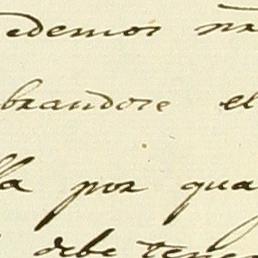 edemos nr
brandose el
lla por qua
debe tene